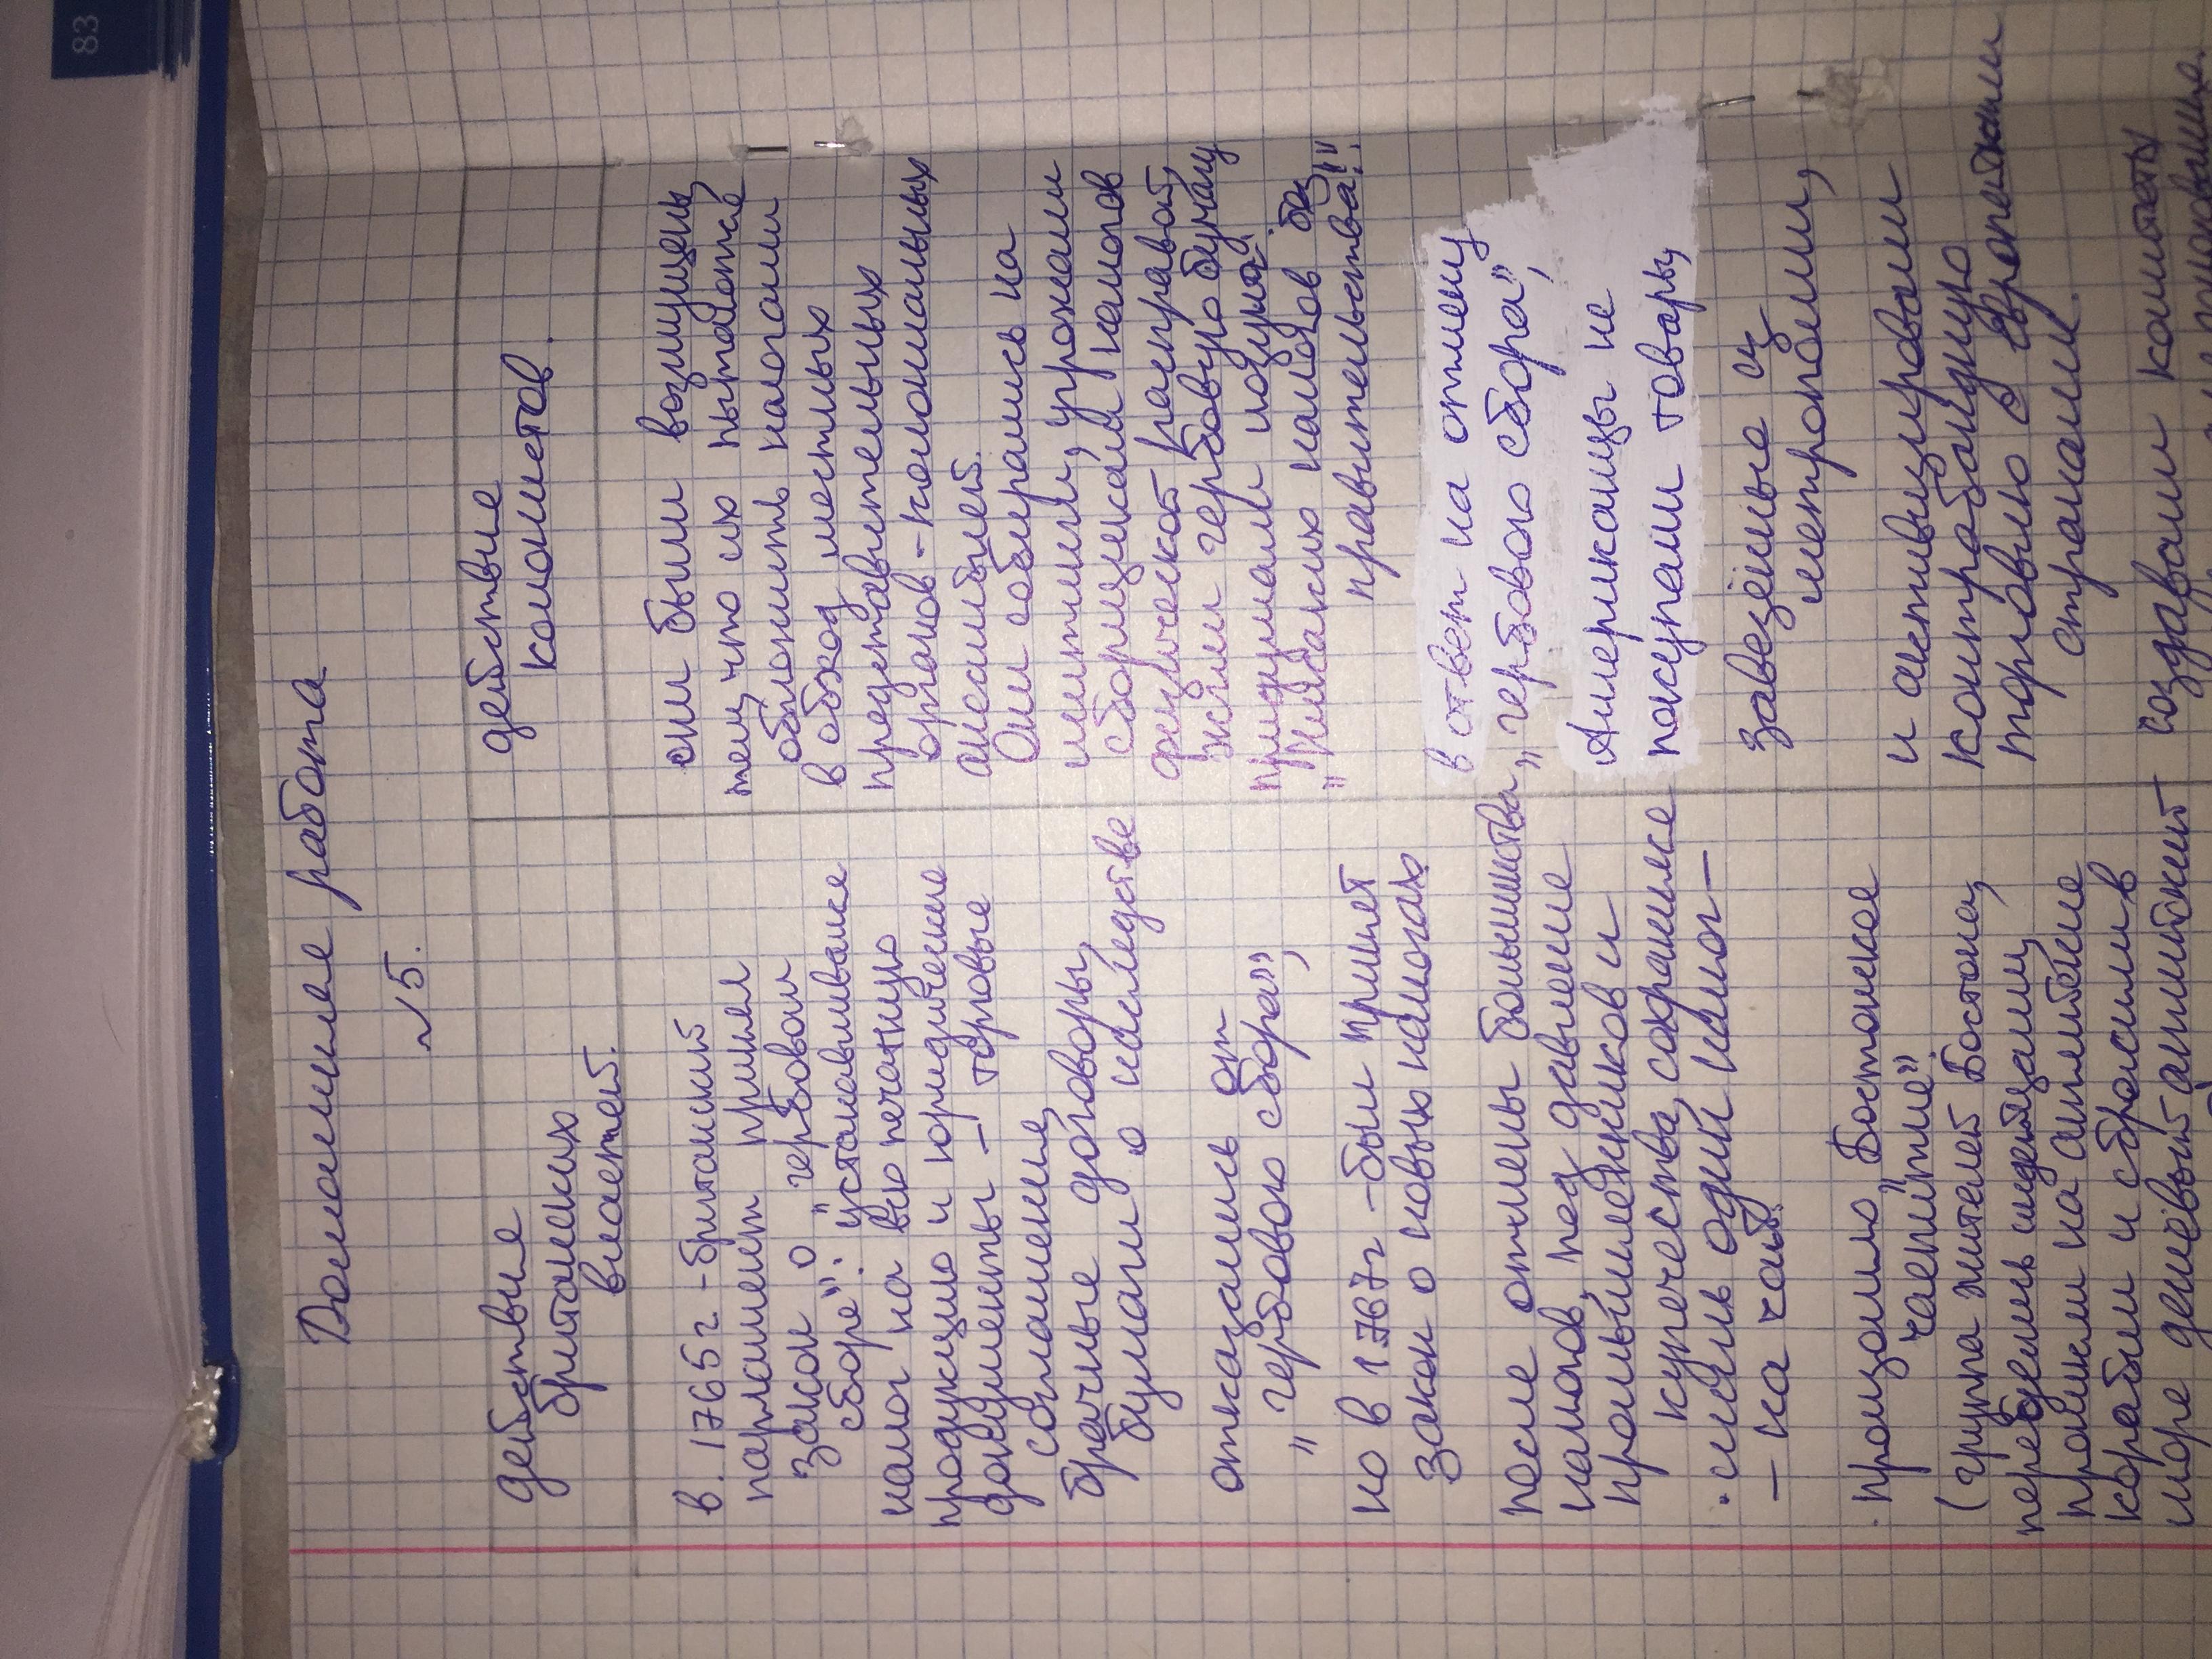 83
Домашняя работа
№5.
действие
британских
властей.
в. 1765г. - британский
парламент принял
закон о "гербовом
сборе": устанавливался
налог на всю печатную
продукцию и юридические
документы - торговые
соглашения,
брачные договоры,
бумаги о наследстве
отказались от
"гербового сбора",
но в 1767г - был принят
закон о новых налогах
после отмены большинства
налогов, под давлением
промышленников и
купечества, сохранился
· лишь один налог -
- на чай.
· произошло "Бостонское
чаепитие".
(группа жителей Бостона,
переоделись индейцами,
проникли на английские
корабли и сбросили в
море дешёвый английский
действие
колонистов.
они были возмущены
тем, что их пытаются
обложить налогами
в обход местных
представительных
органов - колониальных
ассамблей.
Они собирались на
митинги, угрожали
сборщикам налогов
физической расправой,
жгли гербовую бумагу
придумали лозунг:
"Никаких налогов без
правительства!"
в ответ на отмену
"гербового сбора",
Американцы не
покупали товары,
завезённые из
метрополии,
и активизировали
контрабандную
торговлю с европейскими
странами.
создавали комитеты